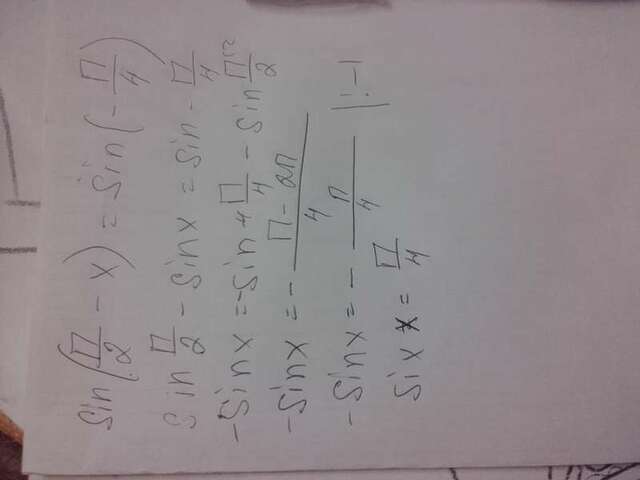 sin(П/2 - x) = sin(-П/4)
sin П/2 - sinx = sin - П/4
-sinx = -sin + П/4 - sin П/2
-sinx = - П - 2П/4
-sinx = - П/4 |:-1
six x = П/4